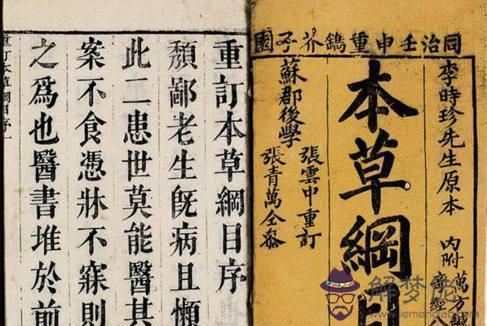 同治壬申重鐫芥子園
李時珍先生原本
內附
萬方鍼
奇經八
本草綱目
蘇郡後學
張雲中重訂
張青萬仝參
重訂本草綱目序
頽鄙老生旣病且懶
此二患世莫能醫其
案不食憑牀不寐則
之爲也醫書堆於前
重訂本草綱目序
解梦佬